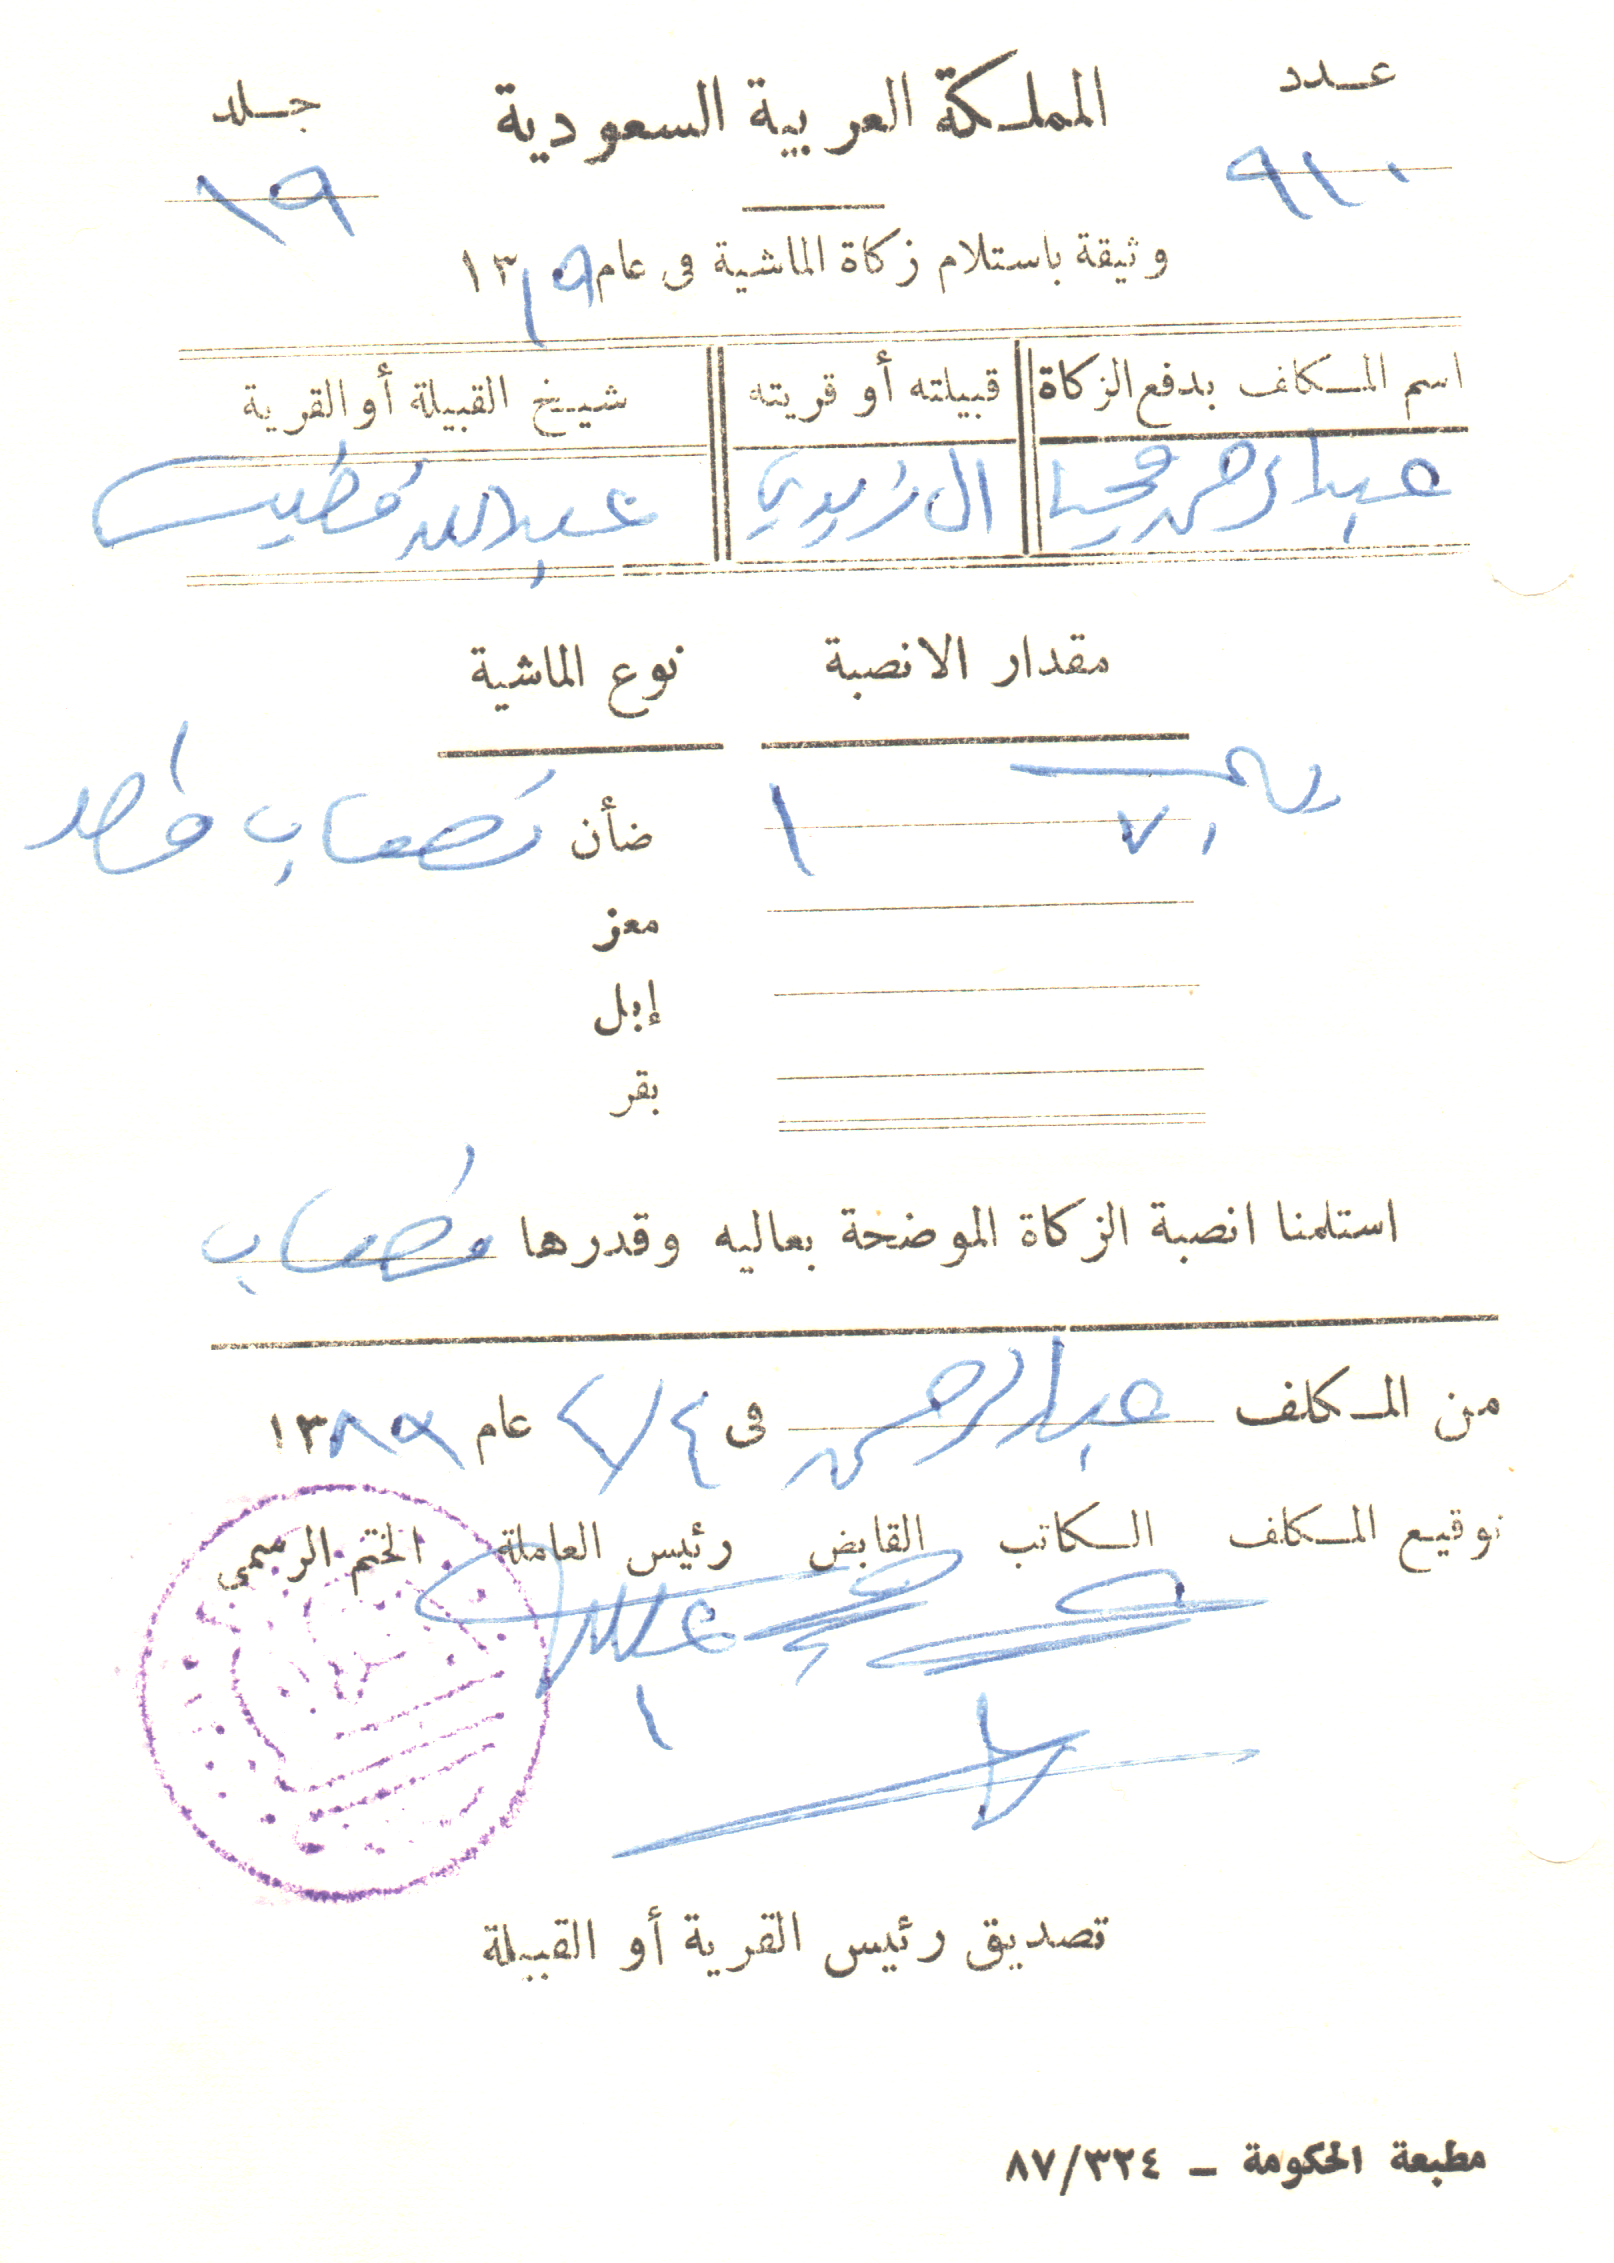 عدد
المملكة العربية السعودية
جلد
٩١٠
١٩
وثيقة باستلام زكاة الماشية فى عام ١٣٨٩
اسم المكلف بدفع الزكاة قبيلته أو قريته شيخ القبيلة أو القرية
عبدالرحمن عبدالله
مقدار الانصبة نوع الماشية
١ ضأن نصاب واحد
معز
إبل
بقر
استلمنا انصبة الزكاة الموضحة بعاليه وقدرها نصاب
من المكلف عبدالرحمن فى ٤/٧ عام ١٣٨٩
توقيع المكلف الكاتب القابض رئيس العاملة الختم الرسمى
تصديق رئيس القرية أو القبيلة
مطبعة الحكومة - ٨٧/٣٢٤